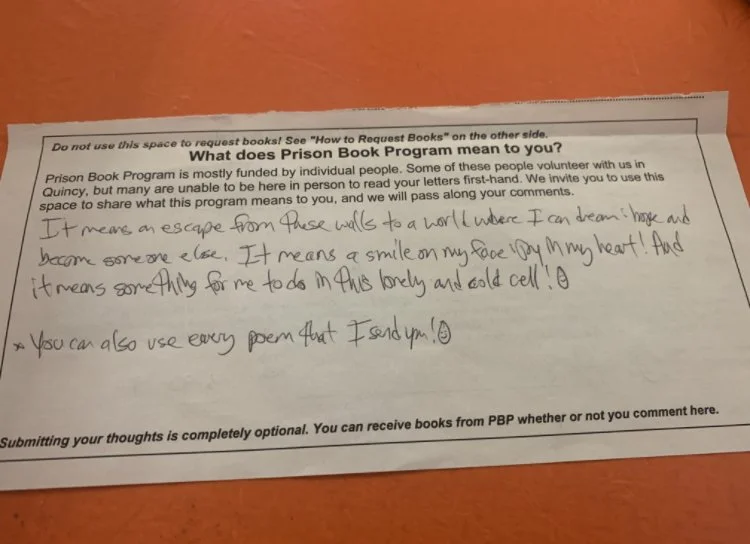 Do not use this space to request books! See "How to Request Books" on the other side.
What does Prison Book Program mean to you?
Prison Book Program is mostly funded by individual people. Some of these people volunteer with us in
Quincy, but many are unable to be here in person to read your letters first-hand. We invite you to use this
space to share what this program means to you, and we will pass along your comments.
It means an escape from these walls to a world where I can dream & hope and
become someone else. It means a smile on my face & joy in my heart! And
it means something for me to do in this lonely and cold cell! ☺
* You can also use every poem that I send you! ☺
Submitting your thoughts is completely optional. You can receive books from PBP whether or not you comment here.